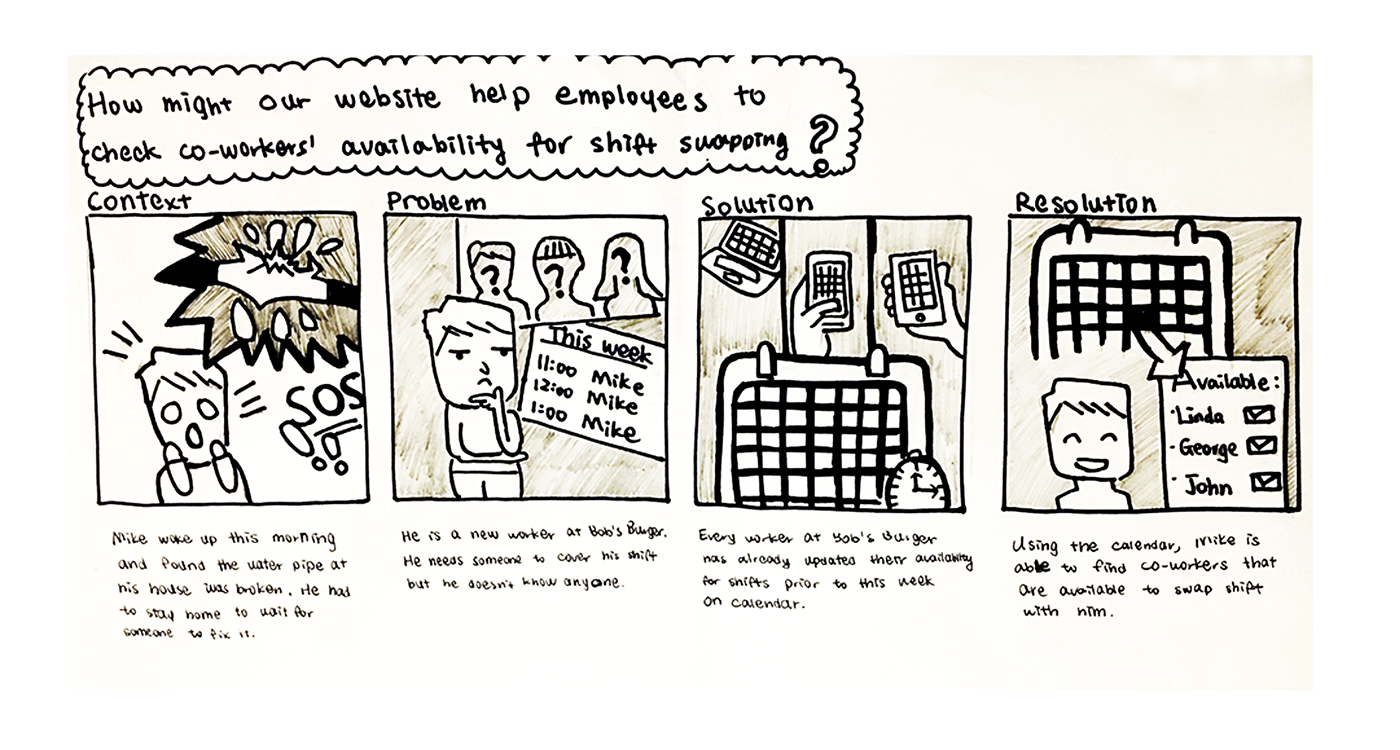 How might our website help employees to
check co-workers' availability for shift swapping ?
Context
SOS
Mike woke up this morning
and found the water pipe at
his house was broken. He had
to stay home to wait for
someone to fix it.
Problem
? ? ?
This week
11:00 Mike
12:00 Mike
1:00 Mike
He is a new worker at Bob's Burger.
He needs someone to cover his shift
but he doesn't know anyone.
Solution
Every worker at Bob's Burger
has already updated their availability
for shifts prior to this week
on calendar.
Resolution
Available:
·Linda
·George
·John
Using the calendar, Mike is
able to find co-workers that
are available to swap shift
with him.